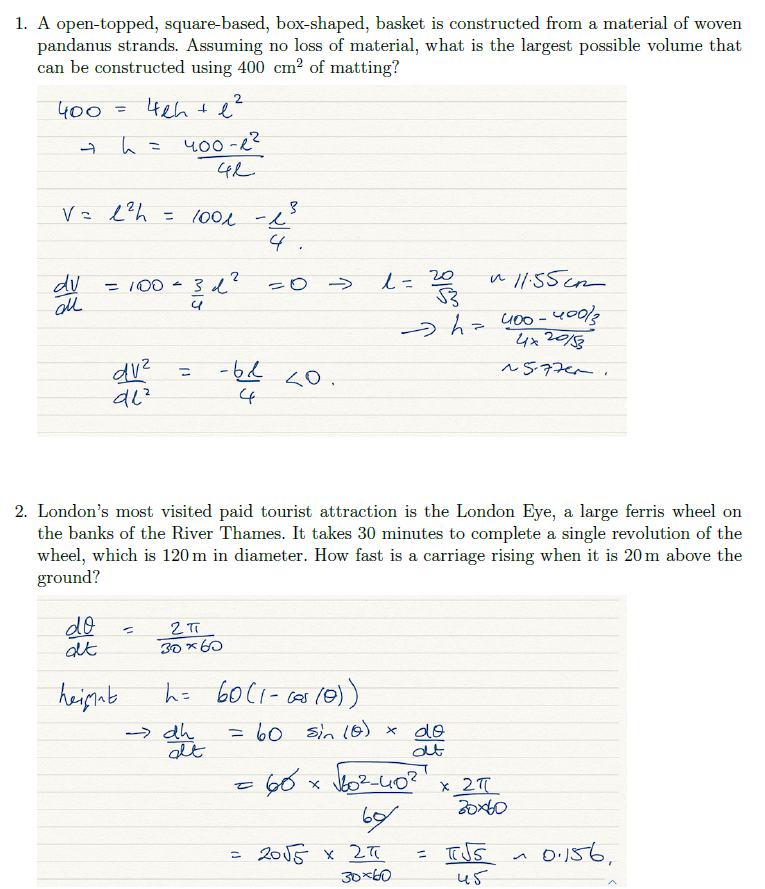 1. A open-topped, square-based, box-shaped, basket is constructed from a material of woven
pandanus strands. Assuming no loss of material, what is the largest possible volume that
can be constructed using 400 cm² of matting?
400 = 4lh + l²
→ h = (400 - l²)/4l
V = l²h = 100l - l³/4.
dV/dl = 100 - 3/4 l² = 0 ⇒ l = 20/√3 ~ 11.55cm
→ h = (400 - 400/3)/(4 × 20/√3)
~ 5.77cm.
dV²/dl² = -6l/4 < 0.
2. London's most visited paid tourist attraction is the London Eye, a large ferris wheel on
the banks of the River Thames. It takes 30 minutes to complete a single revolution of the
wheel, which is 120 m in diameter. How fast is a carriage rising when it is 20 m above the
ground?
dθ/dt = 2π/(30×60)
height h = 60(1 - cos(θ))
→ dh/dt = 60 sin(θ) × dθ/dt
= 60 × √(60²-40²)/60 × 2π/(30×60)
= 20√5 × 2π/(30×60) = π√5/45 ~ 0.156,